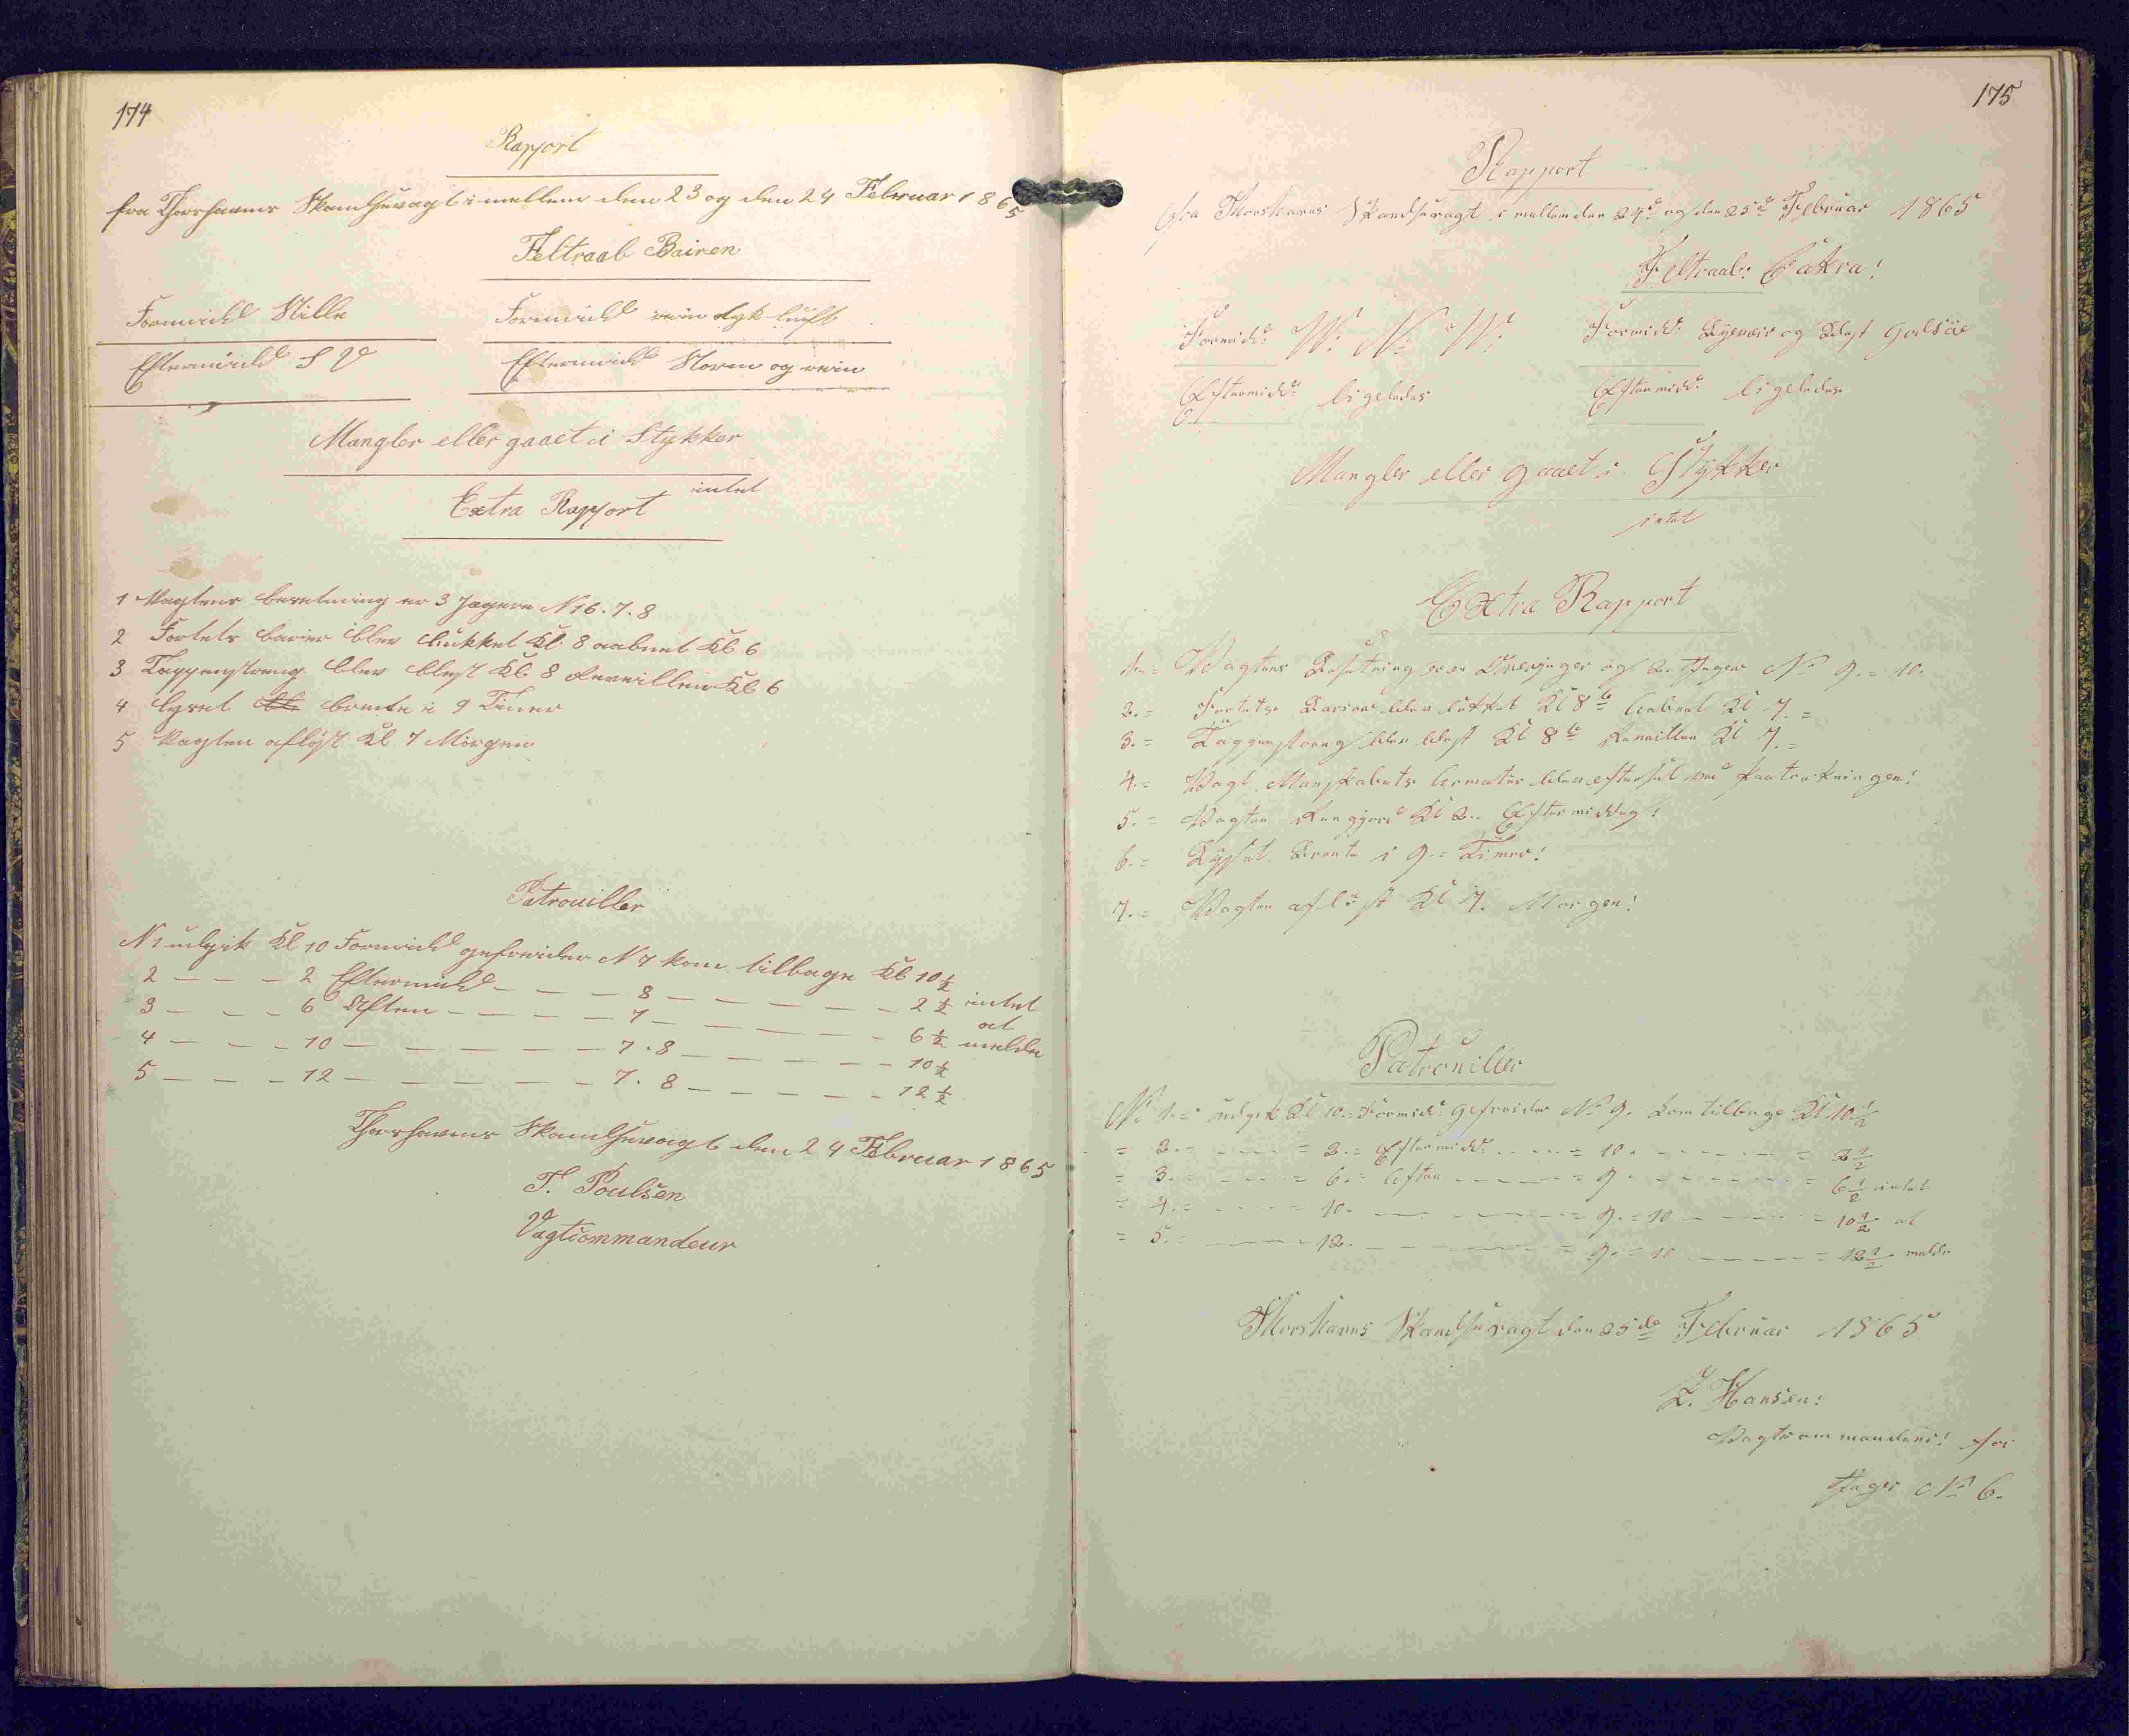 174
Rapport
fra Thorshavns Skandsevagt imellem den 23 og den 24 Februar 1865
Feltraab Bairen
Formidd Stille
Formidd rein tyk luft
Eftermidd S V
Eftermidd Storm og rein
Mangler eller gaaet i Stykker
intet
Extra Rapport
1 Vagtens besetning er 3 Jægere N 6. 7. 8
2 Fortets barier blev lukket Kl. 8 aabnet Kl 6
3 Tappenstreng blev blest Kl 8 Reveillen Kl 6
4 lyset brente i 9 Timer
5 Vagten aflöst Kl 7 Morgen
Patrouiller
N 1 udgik Kl 10 Formidd gefreider N 7 kom tilbage Kl 10 1/2
2 — — — 2 Eftermidd — — — 8 — — — — — — 2 1/2 intet
3 — — — 6 Aften — — — — 7 — — — — — — 6 1/2 at
4 — — — 10 — — — — — 7. 8 — — — — — 10 1/2 melde
5 — — — 12 — — — — — 7. 8 — — — — — 12 1/2
Thorshavns Skandsevagt den 24 Februar 1865
T. Poulsen
Vagtcommandeur
175
Rapport
fra Thorshavns Skandsevagt i mellem den 24de og den 25de Februar 1865
Feltraab: Cätra!
Formidd: W: N: W:
Formidd: og Blest
Eftermidd: ligeledes
Eftermidd: ligeledes
Mangler eller gaaet i Stykker
intet
Extra Rapport
1.= Vagtens Besetning er en og 2. Jæger No 9.= 10.
2.= Fortets Barier blev lukket Kl 8te Aabnet Kl 7.=
3.= Tappenstreng blev blest Kl 8te Reveillen Kl 7.=
4.= Vagt Manskabets Armatur blev efterset ved Paatrekningen!
5.= Vagten Rengjord Kl 2.. Eftermiddag!
6.= Lyset Brente i 9.= Timer!
7.= Vagten aflöst Kl 7. Morgen!
Patrouiller
No 1.= udgik Kl 10.= Formidd: Gefreider No 9. kom tilbage Kl 10 1/2
= 2.= ---- = 2.= Eftermidd: ---- = 10. ------ = 2 1/2
= 3.= ---- = 6.= Aften ---- = 9. ------ = 6 1/2 intet
= 4.= ---- = 10. ------ = 9.= 10 ---- = 10 1/2 at
= 5.= ---- 12. ------ = 9.= 10 ---- = 12 1/2 melde
Thorshavns Skandsevagt den 25de Februar 1865
Z. Hansen!
Vagtcommandeur! for
Jæger No 6.